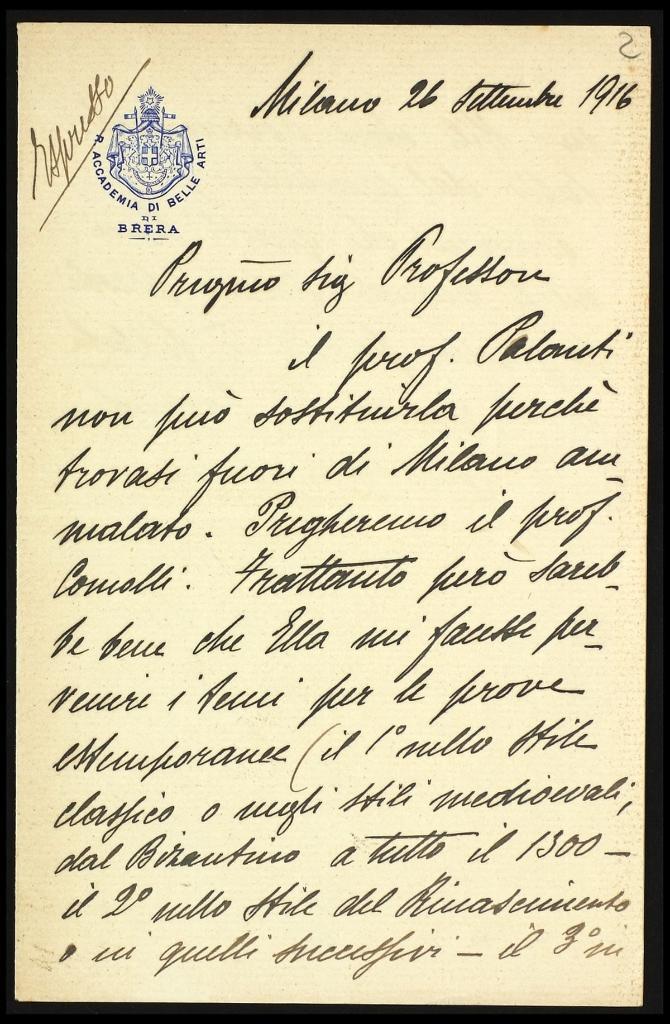 2
Espresso
Milano 26 Settembre 1916
R. ACCADEMIA DI BELLE ARTI
DI
BRERA
Pregmo sig Professore
il prof. Palanti
non può sostituirla perchè
trovasi fuori di Milano am
malato. Pregheremo il prof.
Comolli. Frattanto però sareb-
be bene che Ella mi facesse per-
venire i temi per le prove
estemporanee (il 1° nello stile
classico o negli stili medioevali,
dal Bizantino a tutto il 1300 –
il 2° nello stile del Rinascimento
o in quelli successivi – il 3° in